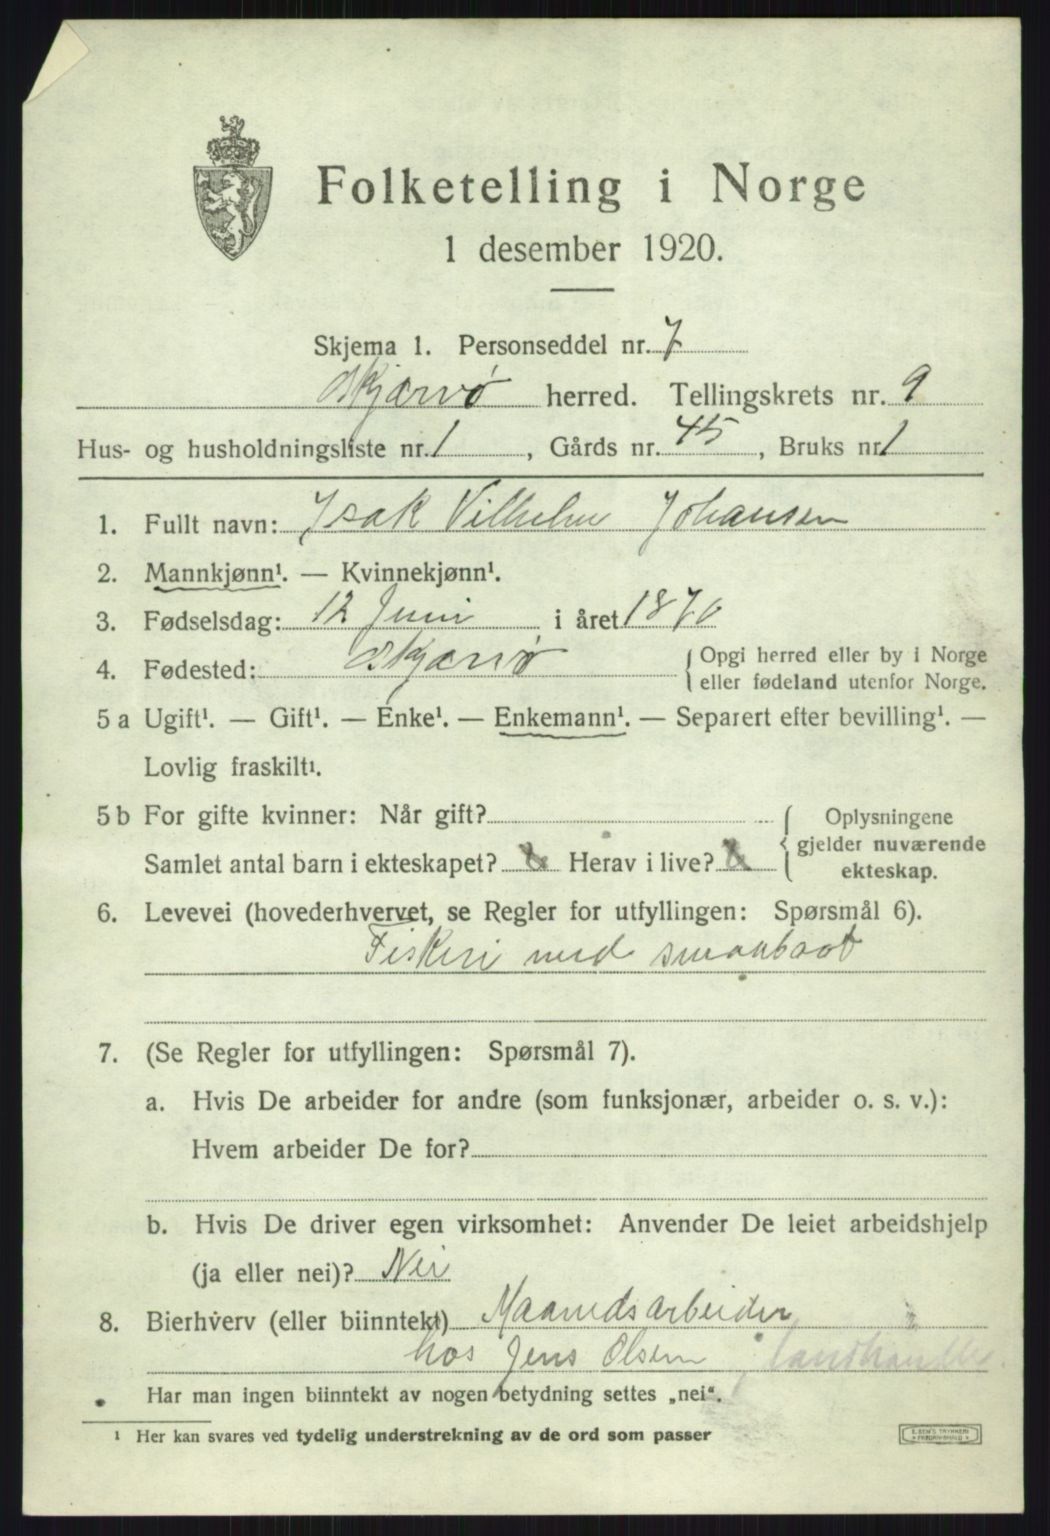 Folketelling i Norge
1 desember 1920.
Skjema 1. Personseddel nr. 7
Skjærvø herred. Tellingskrets nr. 9
Hus- og husholdningsliste nr. 1, Gårds nr. 45, Bruks nr. 1
1. Fullt navn: Isak Vilhelm Johansen
2. Mannkjønn¹. — Kvinnekjønn¹.
3. Fødselsdag: 12 Juni i året 1870
4. Fødested: Skjærvø { Opgi herred eller by i Norge
eller fødeland utenfor Norge.
5 a Ugift¹. — Gift¹. — Enke¹. — Enkemann¹. — Separert efter bevilling¹. —
Lovlig fraskilt¹.
5 b For gifte kvinner: Når gift? { Oplysningene
Samlet antal barn i ekteskapet? Herav i live? gjelder nuværende
ekteskap.
6. Levevei (hovederhvervet, se Regler for utfyllingen: Spørsmål 6).
Fiskeri med smaabaat
7. (Se Regler for utfyllingen: Spørsmål 7).
a. Hvis De arbeider for andre (som funksjonær, arbeider o. s. v.):
Hvem arbeider De for?
b. Hvis De driver egen virksomhet: Anvender De leiet arbeidshjelp
(ja eller nei)? Nei
8. Bierhverv (eller biinntekt) Maanedsarbeider
hos Jens Olsen, landhandler.
Har man ingen biinntekt av nogen betydning settes „nei“.
¹ Her kan svares ved tydelig understrekning av de ord som passer